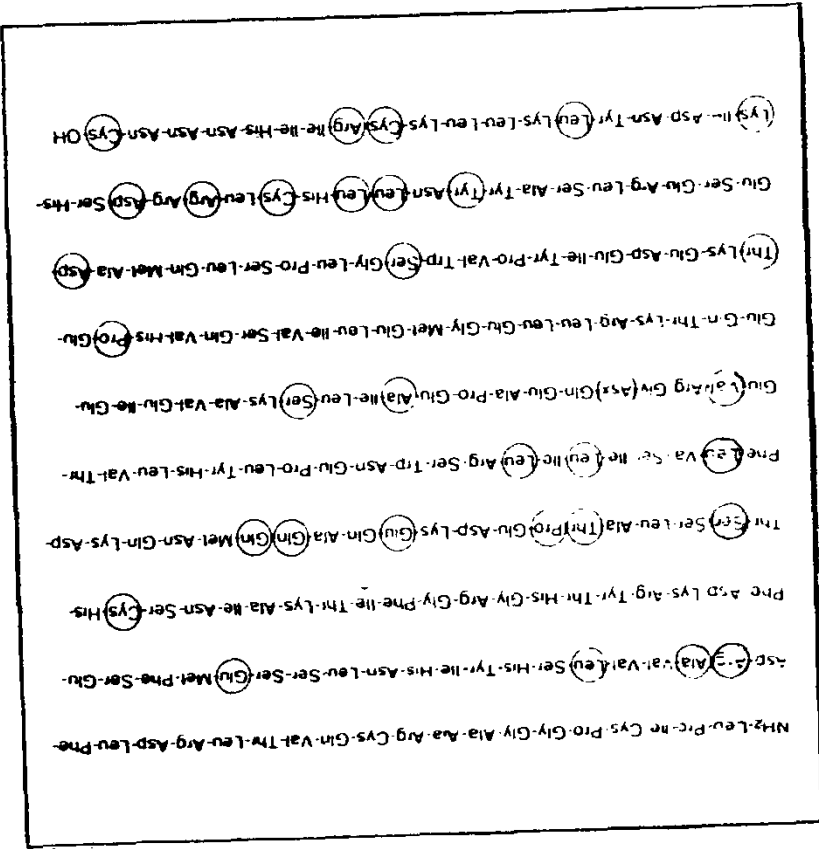 NH2-Leu-Pro-Ile-Cys-Pro-Gly-Gly-Ala-Ala-Arg-Cys-Gln-Val-Thr-Leu-Arg-Asp-Leu-Phe-
Asp-Arg-Ala-Val-Val-Leu-Ser-His-Tyr-Ile-His-Asn-Leu-Ser-Ser-Glu-Met-Phe-Ser-Glu-
Phe-Asp-Lys-Arg-Tyr-Thr-His-Gly-Arg-Gly-Phe-Ile-Thr-Lys-Ala-Ile-Asn-Ser-Cys-His-
Thr-Ser-Ser-Leu-Ala-Thr-Pro-Glu-Asp-Lys-Glu-Gln-Ala-Gln-Gln-Met-Asn-Gln-Lys-Asp-
Phe-Leu-Val-Ser-Ile-Leu-Ile-Leu-Arg-Ser-Trp-Asn-Glu-Pro-Leu-Tyr-His-Leu-Val-Thr-
Glu-Val-Arg-Gly-(Asx)-Gln-Glu-Ala-Pro-Glu-Ala-Ile-Leu-Ser-Lys-Ala-Val-Glu-Ile-Glu-
Glu-Gln-Thr-Lys-Arg-Leu-Leu-Glu-Gly-Met-Glu-Leu-Ile-Val-Ser-Gln-Val-His-Pro-Glu-
Thr-Lys-Glu-Asp-Glu-Ile-Tyr-Pro-Val-Trp-Ser-Gly-Leu-Pro-Ser-Leu-Gln-Met-Ala-Asp-
Glu-Ser-Glu-Arg-Leu-Ser-Ala-Tyr-Tyr-Asn-Leu-Leu-His-Cys-Leu-Arg-Arg-Asp-Ser-His-
Lys-Ile-Asp-Asn-Tyr-Leu-Lys-Leu-Leu-Lys-Cys-Arg-Ile-Ile-His-Asn-Asn-Asn-Cys-OH